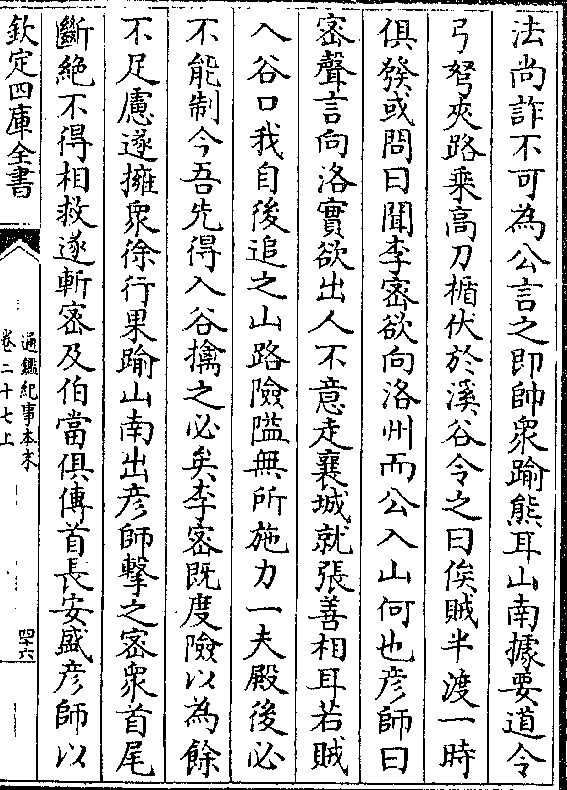 法尚詐不可為公言之即帥衆踰熊耳山南據要道令
弓弩夾路乘高刀楯伏於溪谷令之曰俟賊半渡一時
俱發或問曰聞李密欲向洛州而公入山何也彦師曰
密聲言向洛實欲出人不意走襄城就張善相耳若賊
入谷口我自後追之山路險隘無所施力一夫殿後必
不能制今吾先得入谷擒之必矣李密既度險以為餘
不足慮遂擁衆徐行果踰山南出彦師擊之密衆首尾
斷絶不得相救遂斬密及伯當俱傳首長安盛彦師以
欽定四庫全書
通鑑紀事本末
卷二十七上
四十六